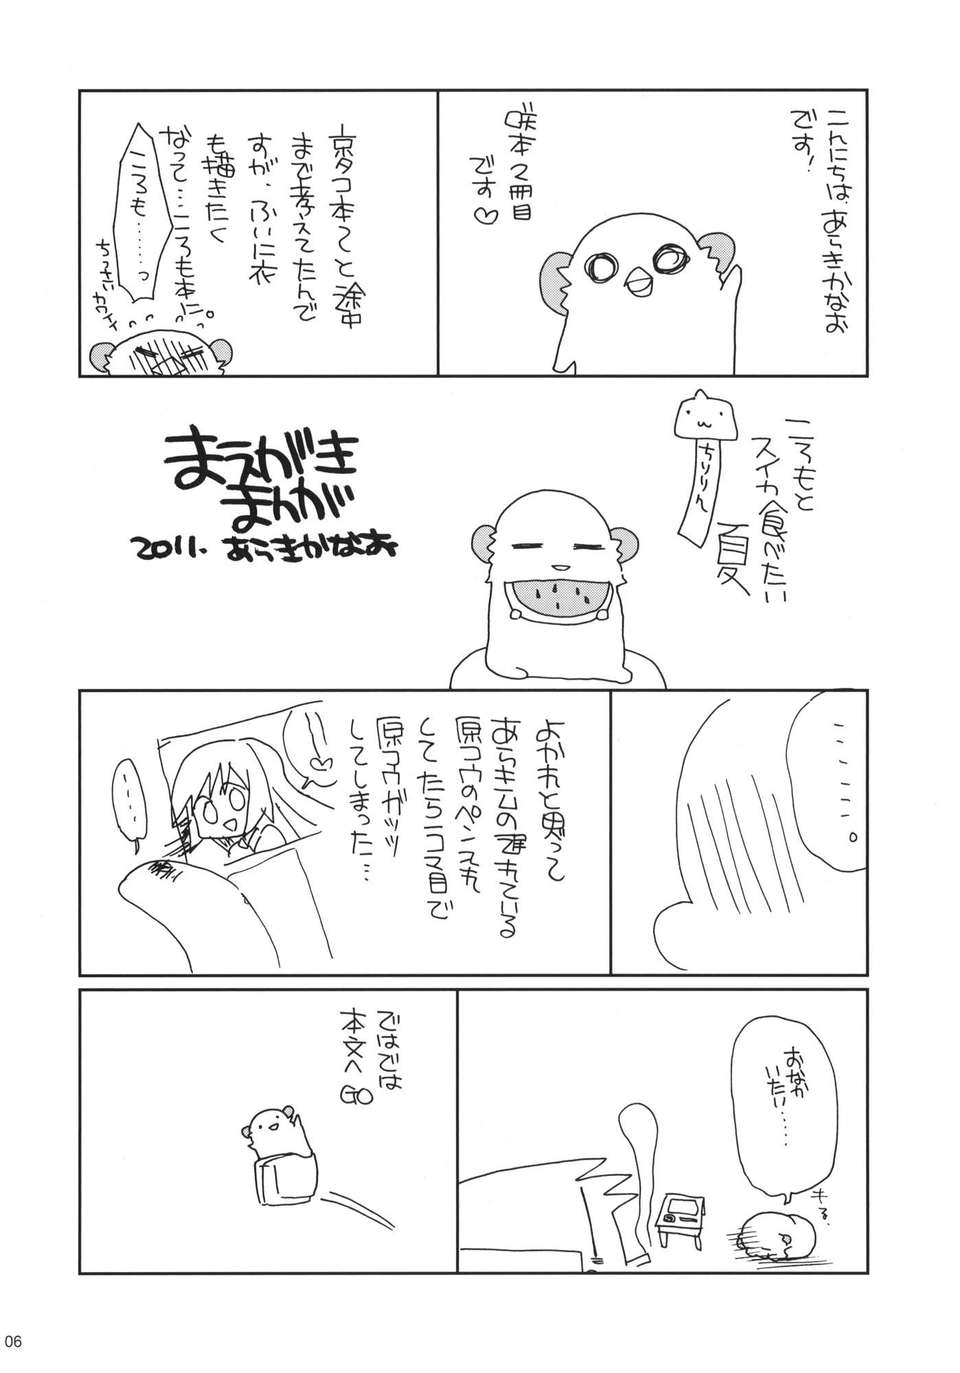 こんにちは、あらきかなお
です!
咲本2冊目
です♡
京タコ本てと途中
まで考えてたんで
すが、ふいに衣
も描きたく
なって…ころも本に。
ころも……っ
ちっさいカワイイ
ころもと
スイカ食べたい
夏
ちりりん
まえがき
まんが
2011. あらきかなお
……。
よかれと思って
あらきムの遅れている
原コウのペンスれ
してたら1コマ目で
原コウガッツ
してしまった…
…
おなか
いたい……
キる
ではでは
本文へ
GO
06